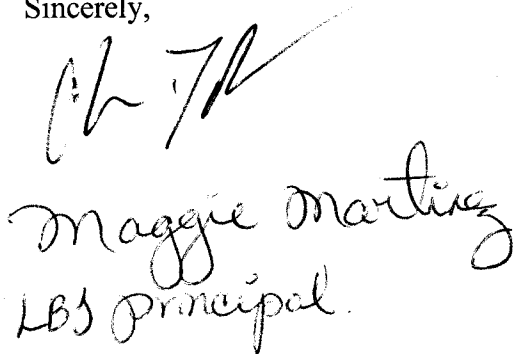 Sincerely,
Maggie Martinez
LBJ principal.